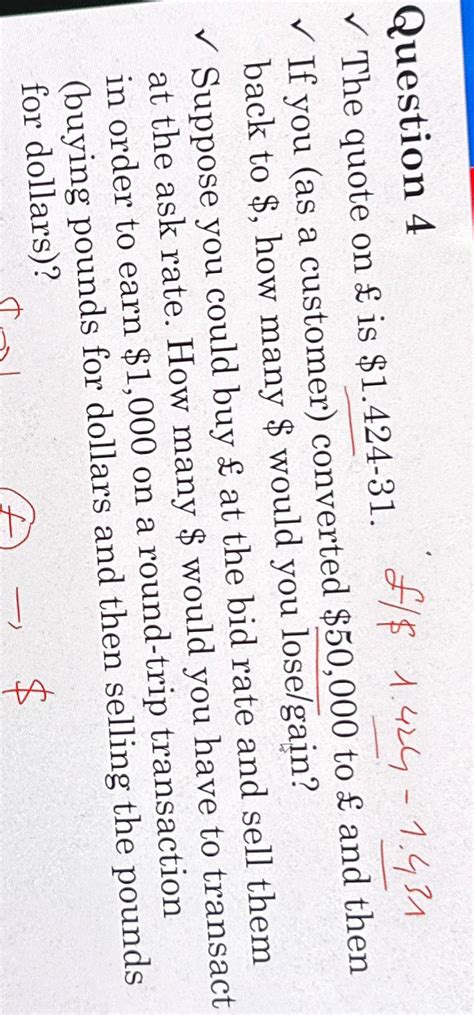 Question 4
✓ The quote on £ is $1.424-31.
£/$ 1.424 - 1.431
✓ If you (as a customer) converted $50,000 to £ and then
back to $, how many $ would you lose/gain?
✓ Suppose you could buy £ at the bid rate and sell them
at the ask rate. How many $ would you have to transact
in order to earn $1,000 on a round-trip transaction
(buying pounds for dollars and then selling the pounds
for dollars)?
£ → $